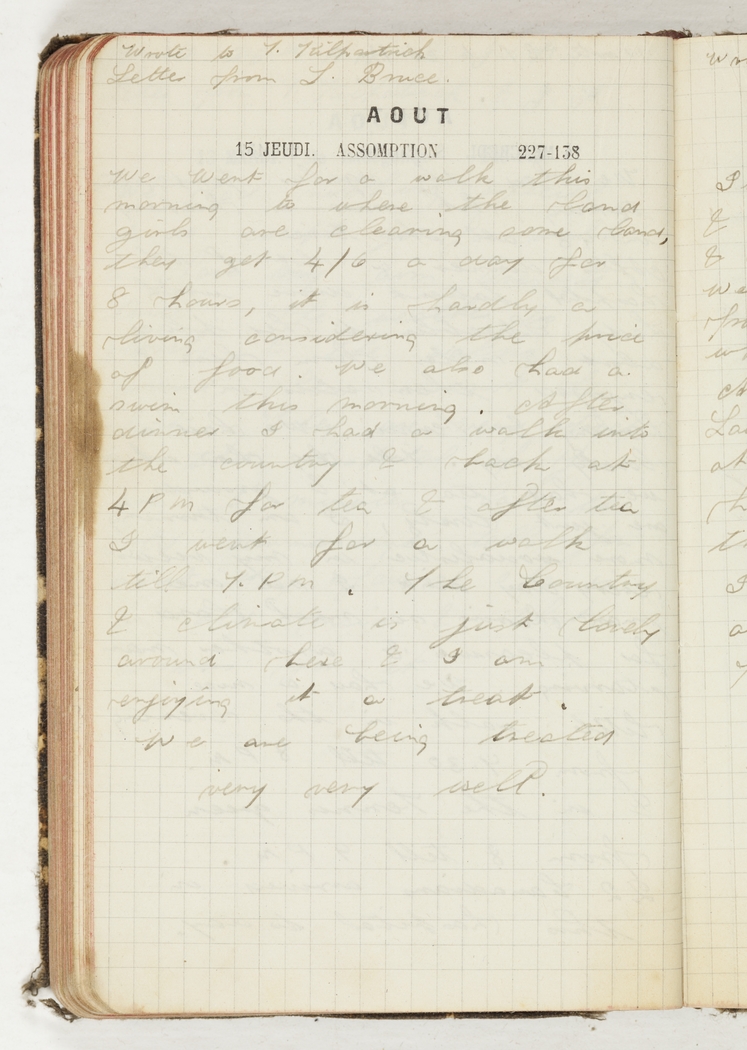 Wrote to T. Kilpatrick
Letter from L. Bruce.
AOUT
15 JEUDI. ASSOMPTION 227-138
We went for a walk this
morning to where the land
girls are clearing some land,
they get 4/6 a day for
8 hours, it is hardly a
living considering the price
of food. We also had a
swim this morning. After
dinner I had a walk into
the country & back at
4 PM for tea & after tea
I went for a walk
till 7.PM. The Country
& climate is just lovely
around here & I am
enjoying it a treat.
We are being treated
very very well.